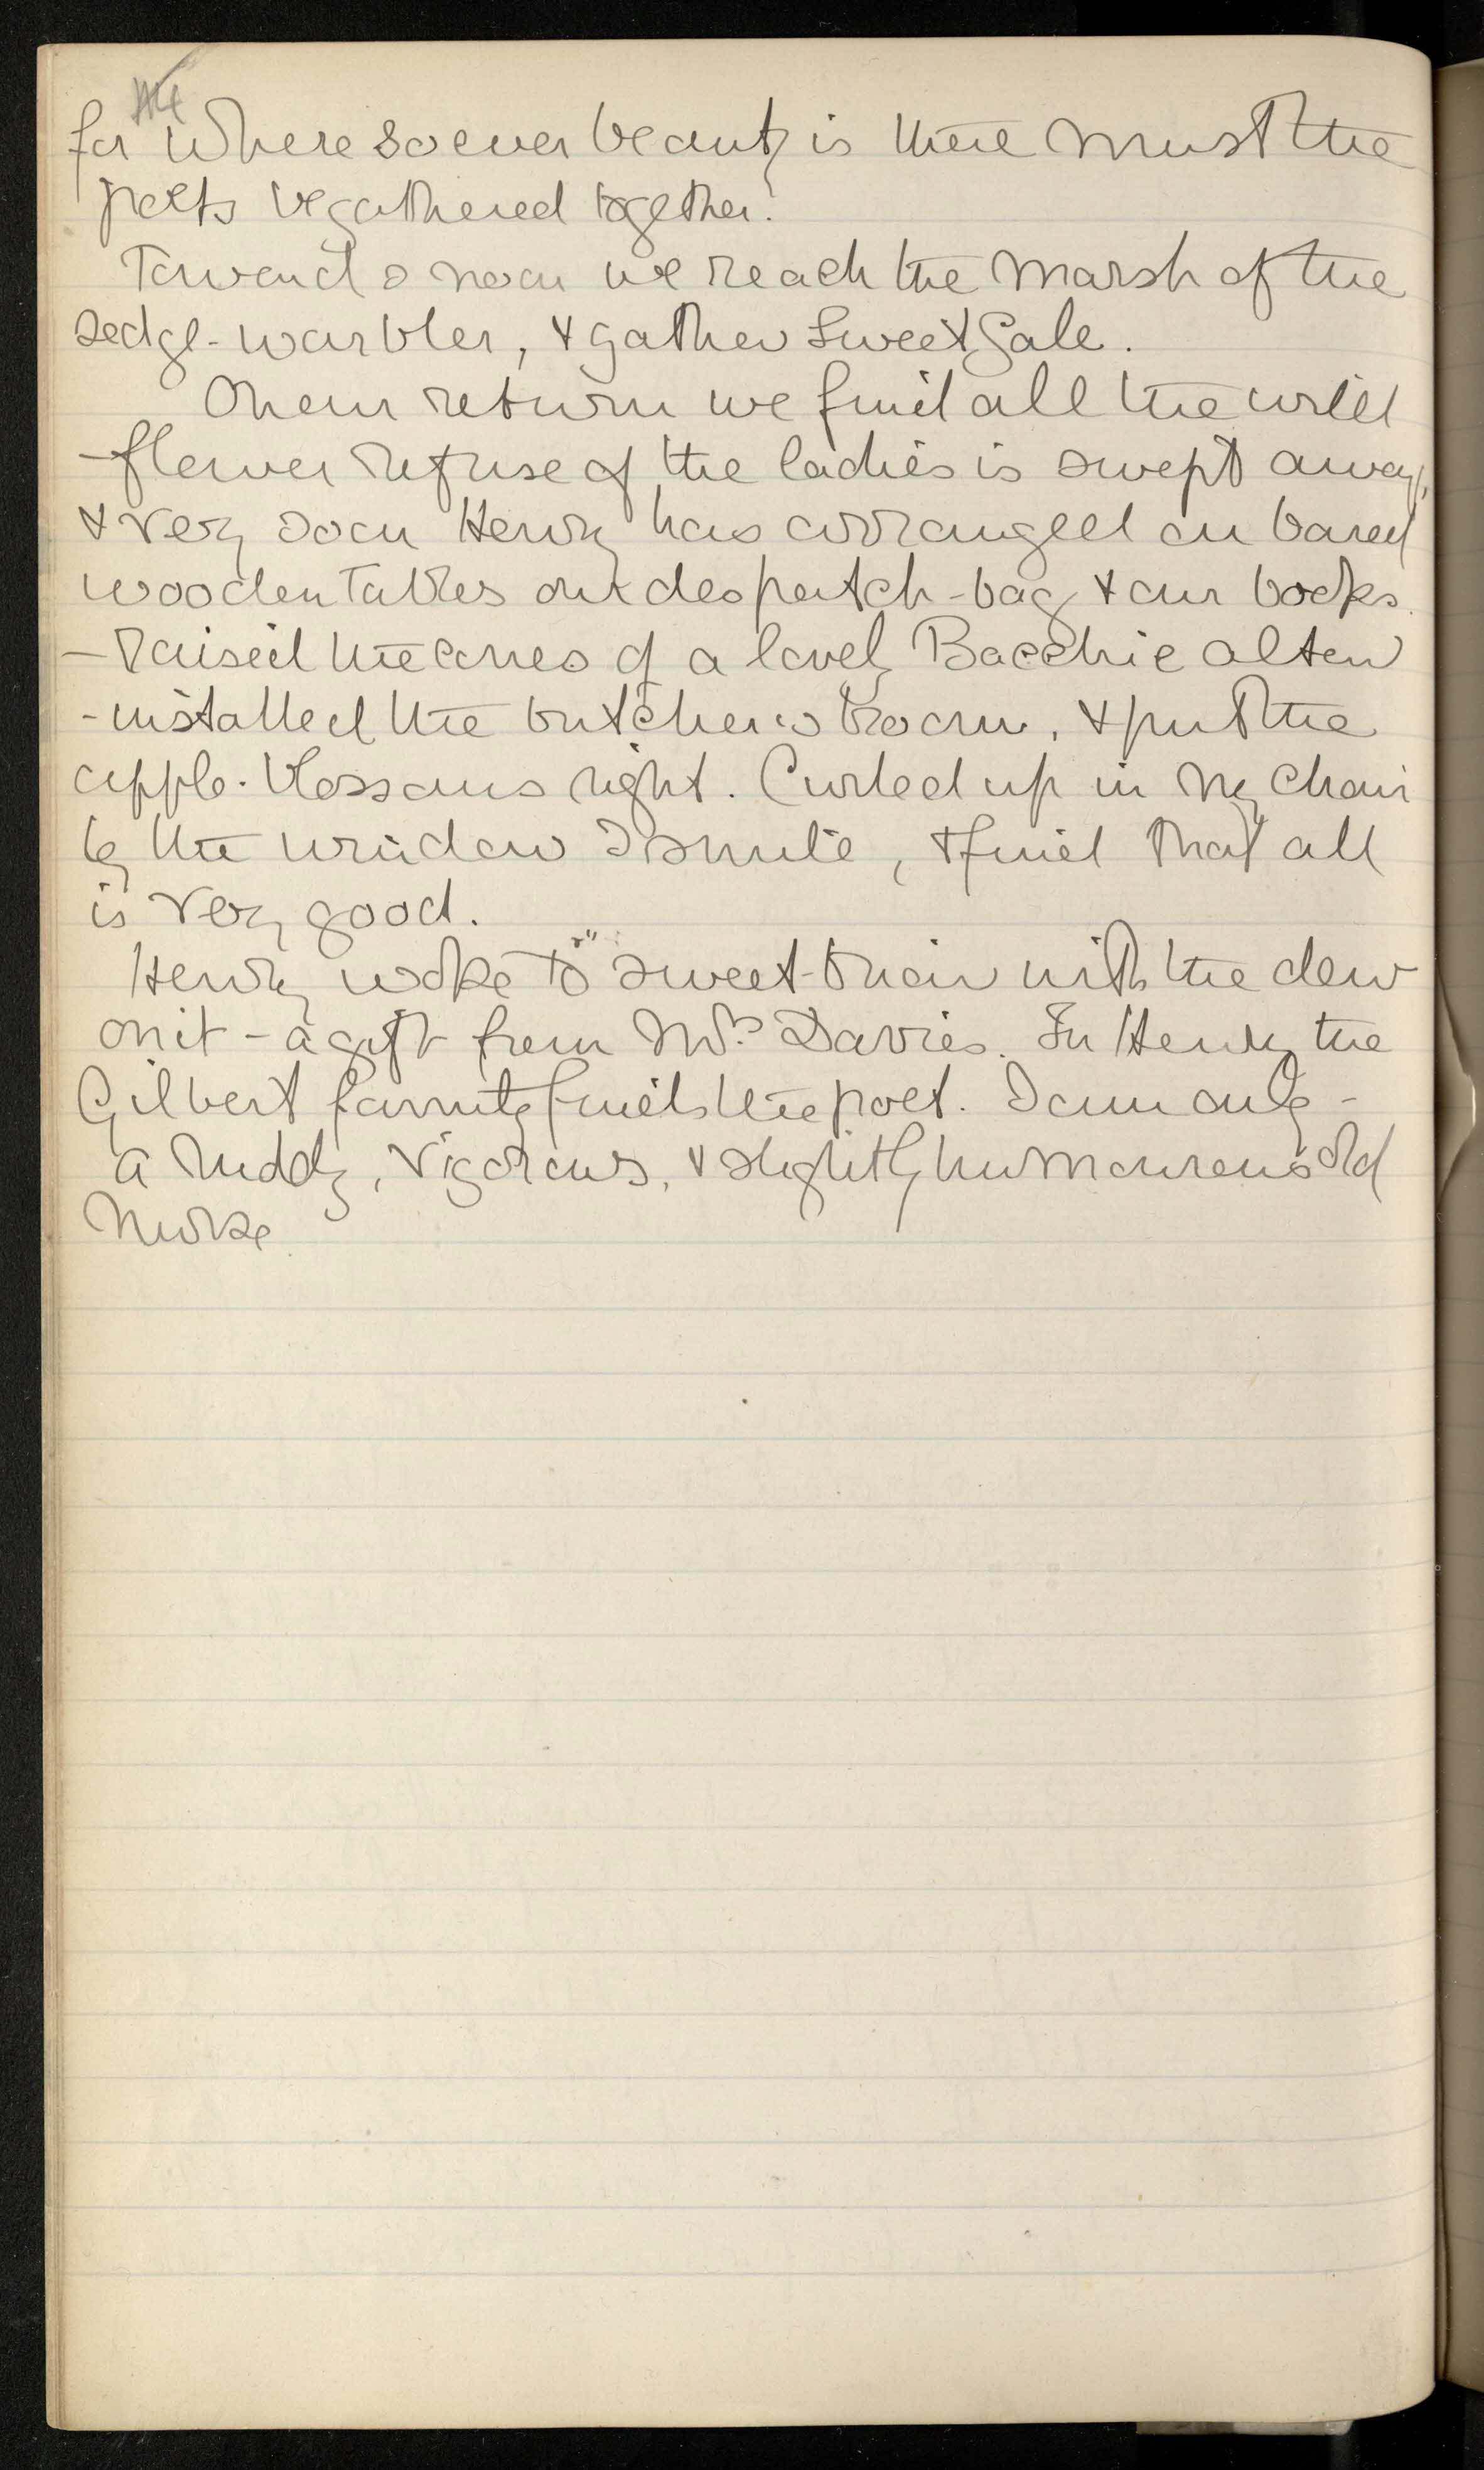 for wheresoever beauty is there must the
poets be gathered together.
Towards noon we reach the marsh of the
sedge-warbler, & gather Sweet Gale.
On our return we find all the wild
-flower refuse of the ladies is swept away,
& very soon Henry has arranged on bared
wooden tables our despatch-bag & our books
- raised the of a lovely Bacchic altar
- installed the butcher's broom, & put the
apple-blossoms right. Curled up in my chair
by the window I smile, & find that all
is very good.
Henry woke to sweet-briar with the dew
on it - a gift from Mrs Davies. In Henry the
Gilbert family finds the poet. I am only -
a ruddy, vigorous, & slightly humourous old
Nurse